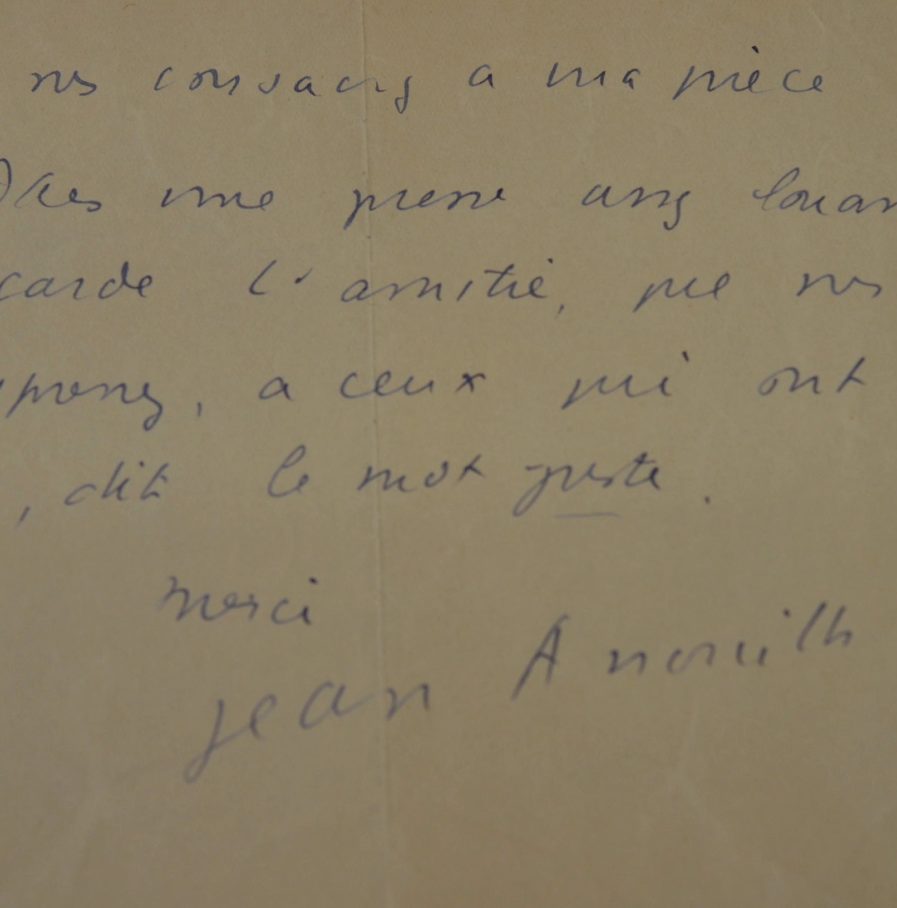 vs consacrez a ma pièce
Dans une presse assez louan
garde l'amitié, que vs
pposez, a ceux qui ont
, dit le mot juste.
Merci
Jean Anouilh